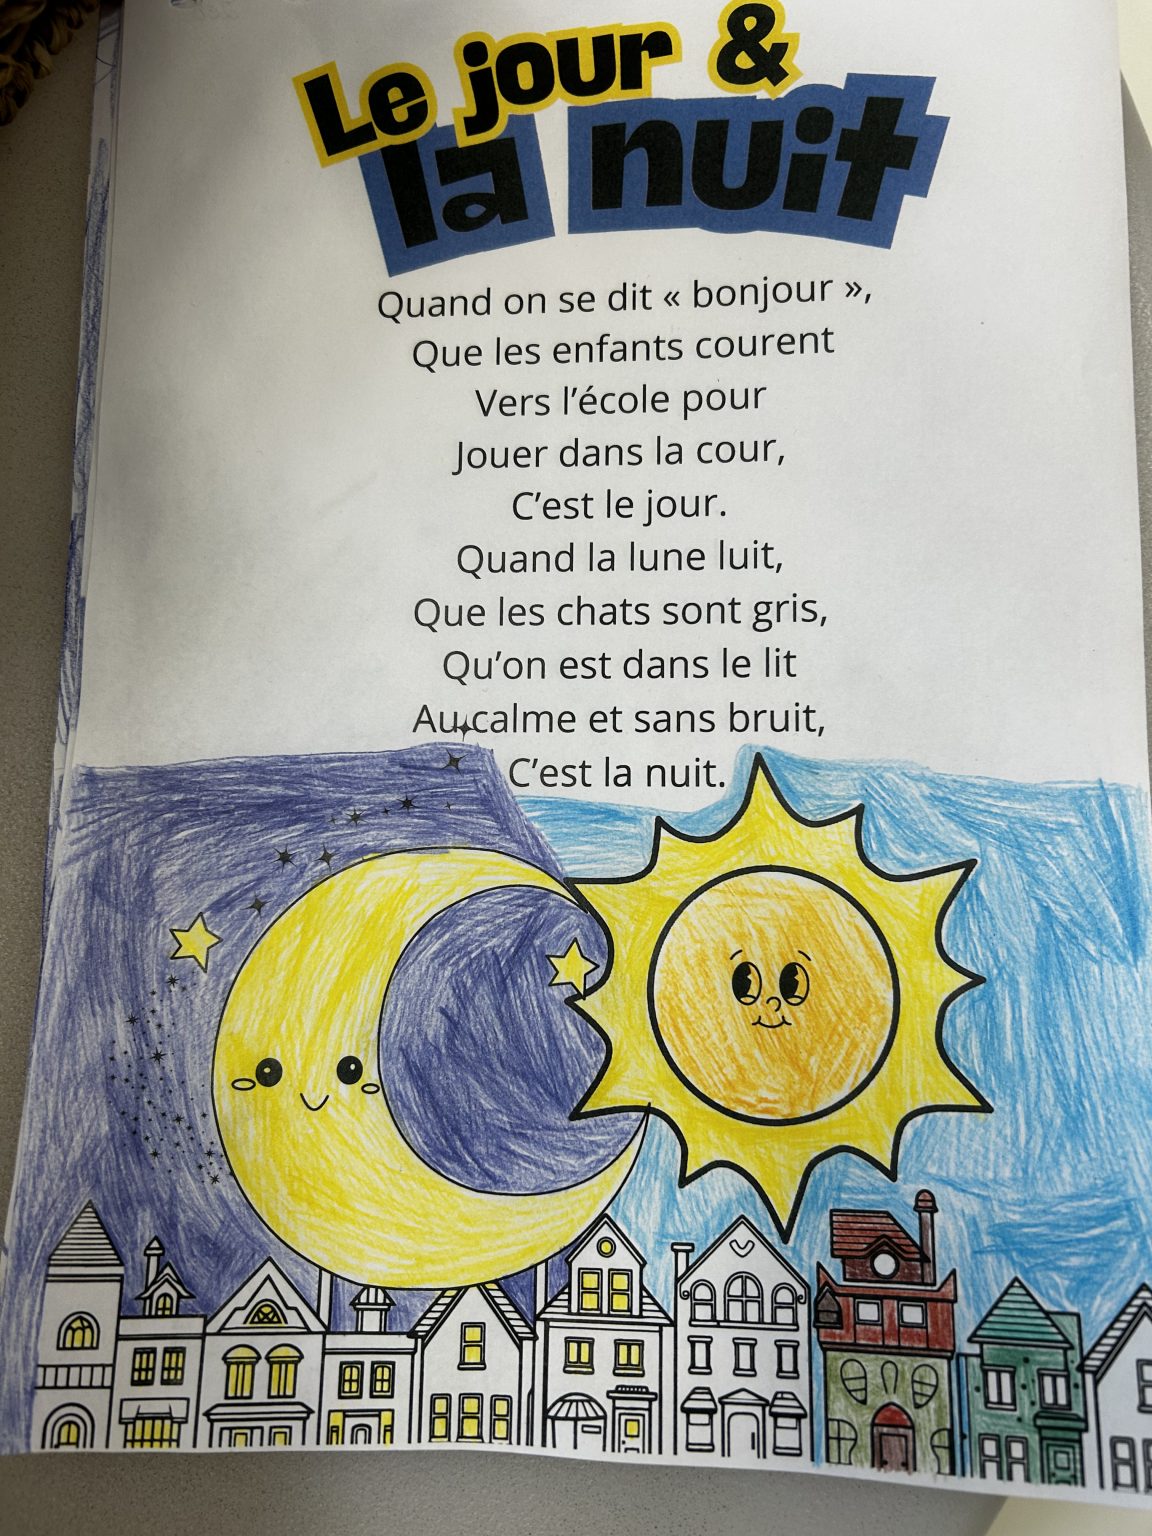 Le jour &
la nuit
Quand on se dit « bonjour »,
Que les enfants courent
Vers l’école pour
Jouer dans la cour,
C’est le jour.
Quand la lune luit,
Que les chats sont gris,
Qu’on est dans le lit
Au calme et sans bruit,
C’est la nuit.